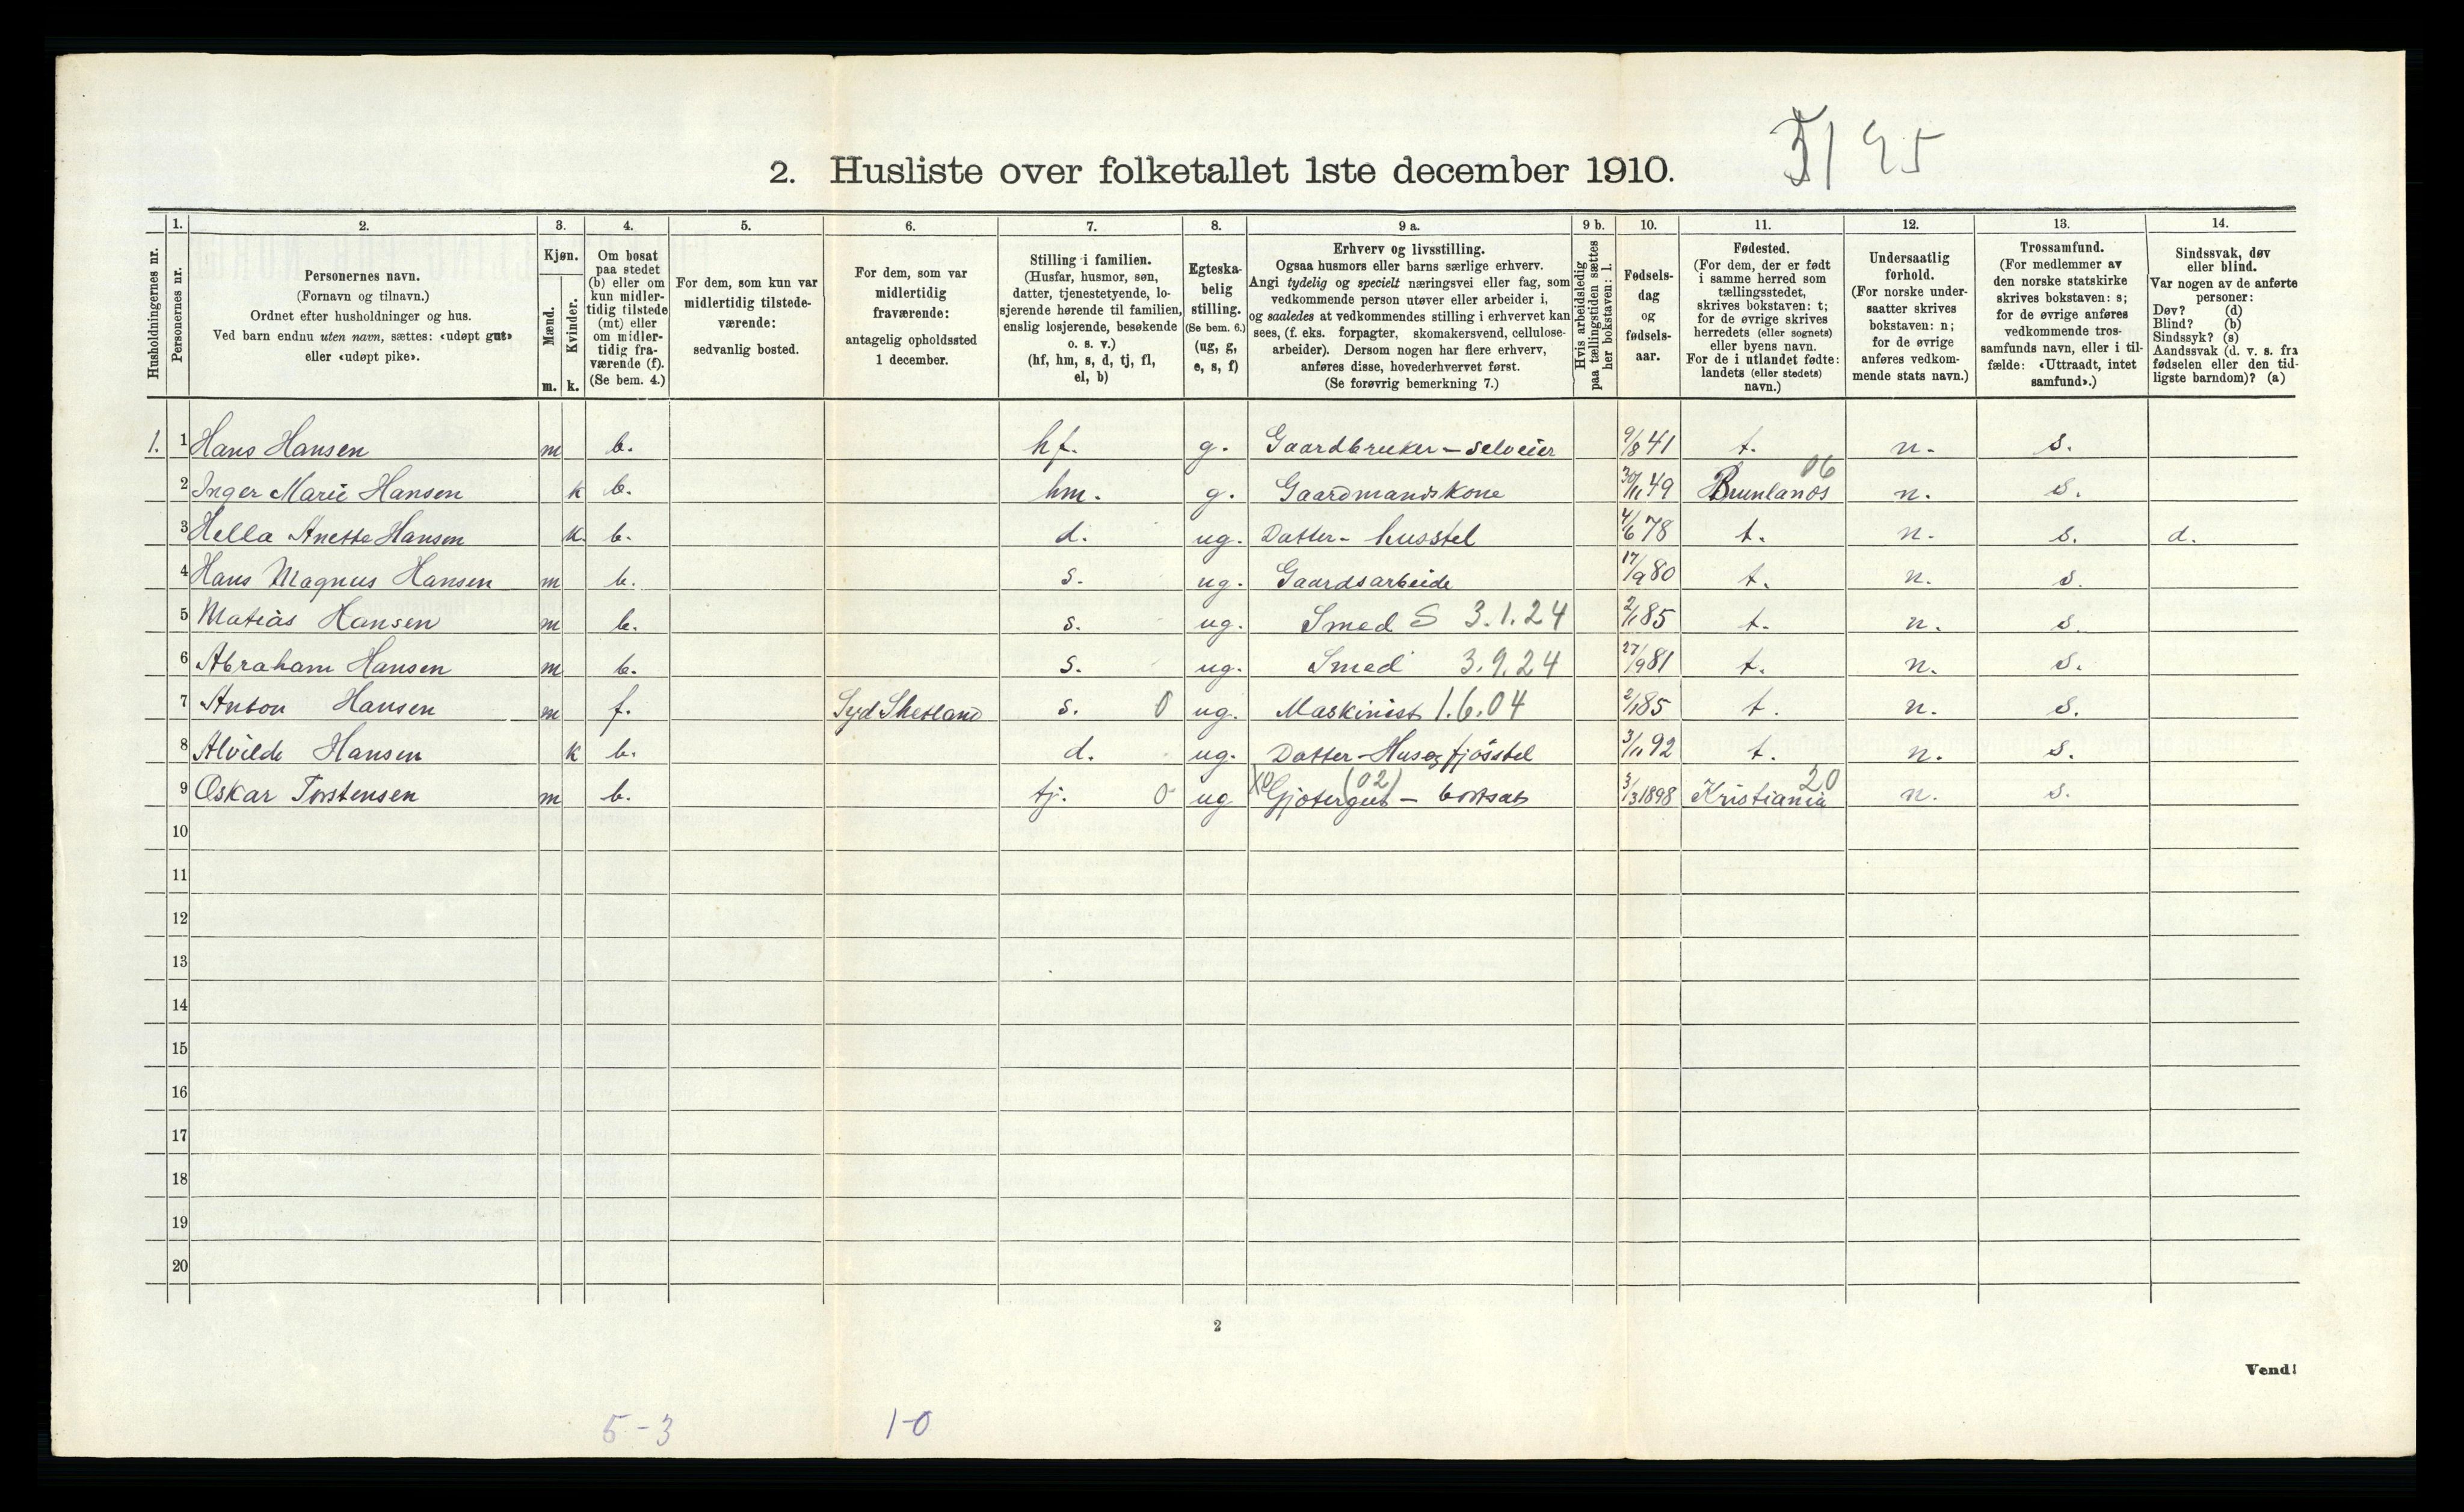 5195
2. Husliste over folketallet 1ste december 1910.
Husholdningernes nr.
1. Personernes nr.
2. Personernes navn. (Fornavn og tilnavn.) Ordnet efter husholdninger og hus. Ved barn endnu uten navn, sættes: «udøpt gut» eller «udøpt pike».
3. Kjøn. Mænd. m. Kvinder. k.
4. Om bosat paa stedet (b) eller om kun midler-tidig tilstede (mt) eller om midler-tidig fra-værende (f). (Se bem. 4.)
5. For dem, som kun var midlertidig tilstede-værende: sedvanlig bosted.
6. For dem, som var midlertidig fraværende: antagelig opholdssted 1 december.
7. Stilling i familien. (Husfar, husmor, søn, datter, tjenestetyende, lo-sjerende hørende til familien, enslig losjerende, besøkende o. s. v.) (hf, hm, s, d, tj, fl, el, b)
8. Egteska-belig stilling. (Se bem. 6.) (ug, g, e, s, f)
9 a. Erhverv og livsstilling. Ogsaa husmors eller barns særlige erhverv. Angi tydelig og specielt næringsvei eller fag, som vedkommende person utøver eller arbeider i, og saaledes at vedkommendes stilling i erhvervet kan sees, (f. eks. forpagter, skomakersvend, cellulose-arbeider). Dersom nogen har flere erhverv, anføres disse, hovederhvervet først. (Se forøvrig bemerkning 7.)
9 b. Hvis arbeidsledig paa tællingstiden sættes her bokstaven: l.
10. Fødsels-dag og fødsels-aar.
11. Fødested. (For dem, der er født i samme herred som tællingsstedet, skrives bokstaven: t; for de øvrige skrives herredets (eller sognets) eller byens navn. For de i utlandet fødte: landets (eller stedets) navn.)
12. Undersaatlig forhold. (For norske under-saatter skrives bokstaven: n; for de øvrige anføres vedkom-mende stats navn.)
13. Trossamfund. (For medlemmer av den norske statskirke skrives bokstaven: s; for de øvrige anføres vedkommende tros-samfunds navn, eller i til-fælde: «Uttraadt, intet samfund».)
14. Sindssvak, døv eller blind. Var nogen av de anførte personer: Døv? (d) Blind? (b) Sindssyk? (s) Aandssvak (d. v. s. fra fødselen eller den tid-ligste barndom)? (a)
1. 1 Hans Hansen m b. hf. g. Gaardbruker - selveier 9/8 41 t. n. s.
2 Inger Marie Hansen k b. hm. g. Gaardmandskone 30/11 49 Brunlanes 06 n. s.
3 Hella Anette Hansen k. b. d. ug. Datter - husstel 4/6 78 t. n. s. d.
4 Hans Magnus Hansen m b. s. ug. Gaardsarbeide 17/9 80 t. n. s.
5 Matias Hansen m b. s. ug. Smed S 3.1.24 2/1 85 t. n. s.
6 Abraham Hansen m b. s. ug. Smed 3.9.24 27/9 81 t. n. s.
7 Anton Hansen m f. Syd Shetland s. 0 ug. Maskinist 1.6.04 2/1 85 t. n. s.
8 Alvilde Hansen k b. d. ug. Datter - Hus og fjösstel 3/11 92 t. n. s.
9 Oskar Torstensen m b. tj. 0 ug Gjetergut - bortsat (02) 3/3 1898 Kristiania 20 n. s.
10
11
12
13
14
15
16
17
18
19
20
2
Vend!
5-3 1-0